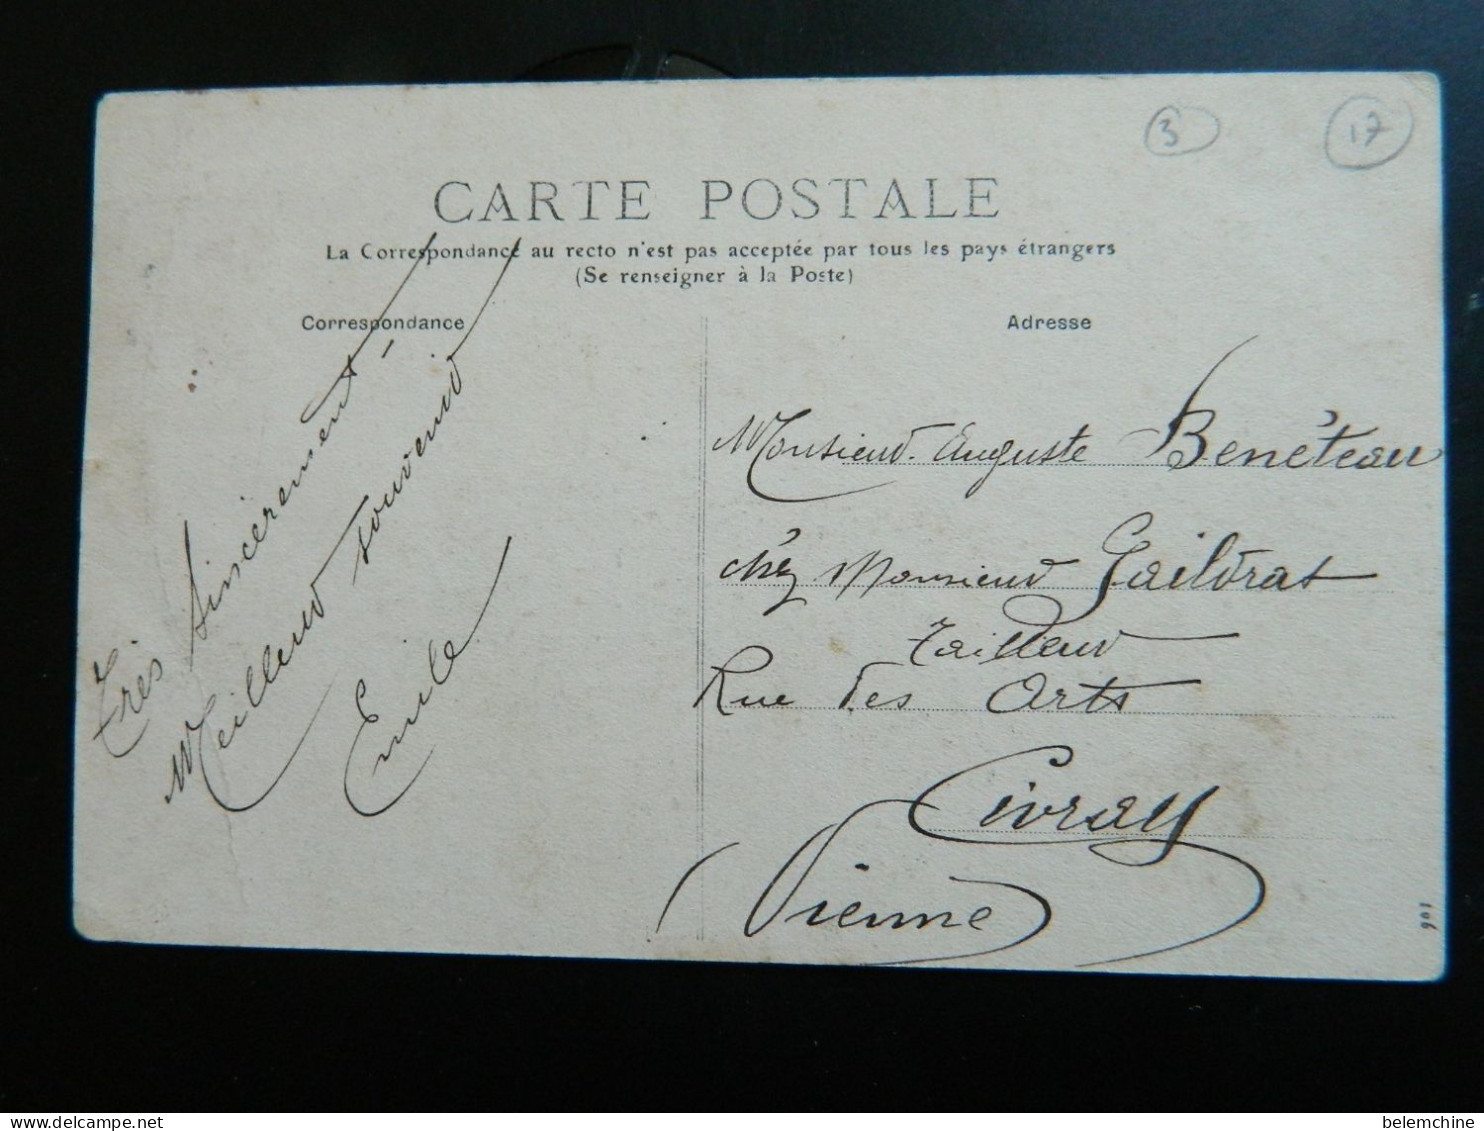 3
17
CARTE POSTALE
La Correspondance au recto n'est pas acceptée par tous les pays étrangers
(Se renseigner à la Poste)
Correspondance
Adresse
Très Sincèrement
Meilleur souvenir
Emile
Monsieur Auguste Benéteau
chez Monsieur Gaildrat
Tailleur
Rue des Arts
Civray
Vienne
901
belemchine